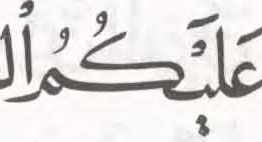 عَلَيْكُمُ ٱل